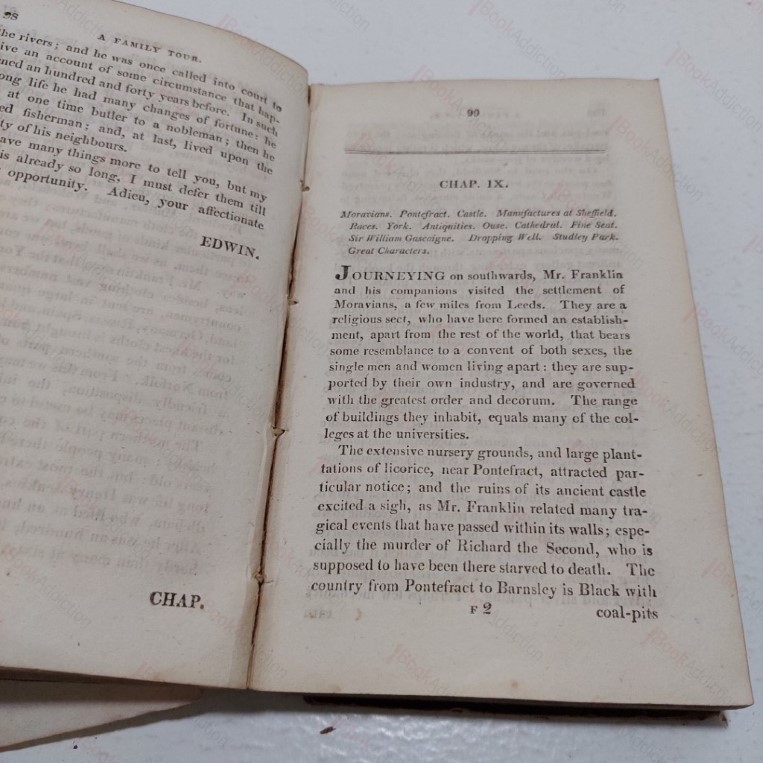 98
A FAMILY TOUR.
the rivers; and he was once called into court to
give an account of some circumstance that hap-
pened an hundred and forty years before. In such
long life he had many changes of fortune: he
at one time butler to a nobleman; then he
fisherman; and, at last, lived upon the
of his neighbours.
have many things more to tell you, but my
is already so long, I must defer them till
opportunity. Adieu, your affectionate
EDWIN.
CHAP.
99
CHAP. IX.
Moravians. Pontefract. Castle. Manufactures at Sheffield.
Races. York. Antiquities. Ouse. Cathedral. Fine Seat.
Sir William Gascoigne. Dropping Well. Studley Park.
Great Characters.
JOURNEYING on southwards, Mr. Franklin
and his companions visited the settlement of
Moravians, a few miles from Leeds. They are a
religious sect, who have here formed an establish-
ment, apart from the rest of the world, that bears
some resemblance to a convent of both sexes, the
single men and women living apart: they are sup-
ported by their own industry, and are governed
with the greatest order and decorum. The range
of buildings they inhabit, equals many of the col-
leges at the universities.
The extensive nursery grounds, and large plant-
tations of licorice, near Pontefract, attracted par-
ticular notice; and the ruins of its ancient castle
excited a sigh, as Mr. Franklin related many tra-
gical events that have passed within its walls; espe-
cially the murder of Richard the Second, who is
supposed to have been there starved to death. The
country from Pontefract to Barnsley is Black with
F 2 coal-pits
BookAddiction